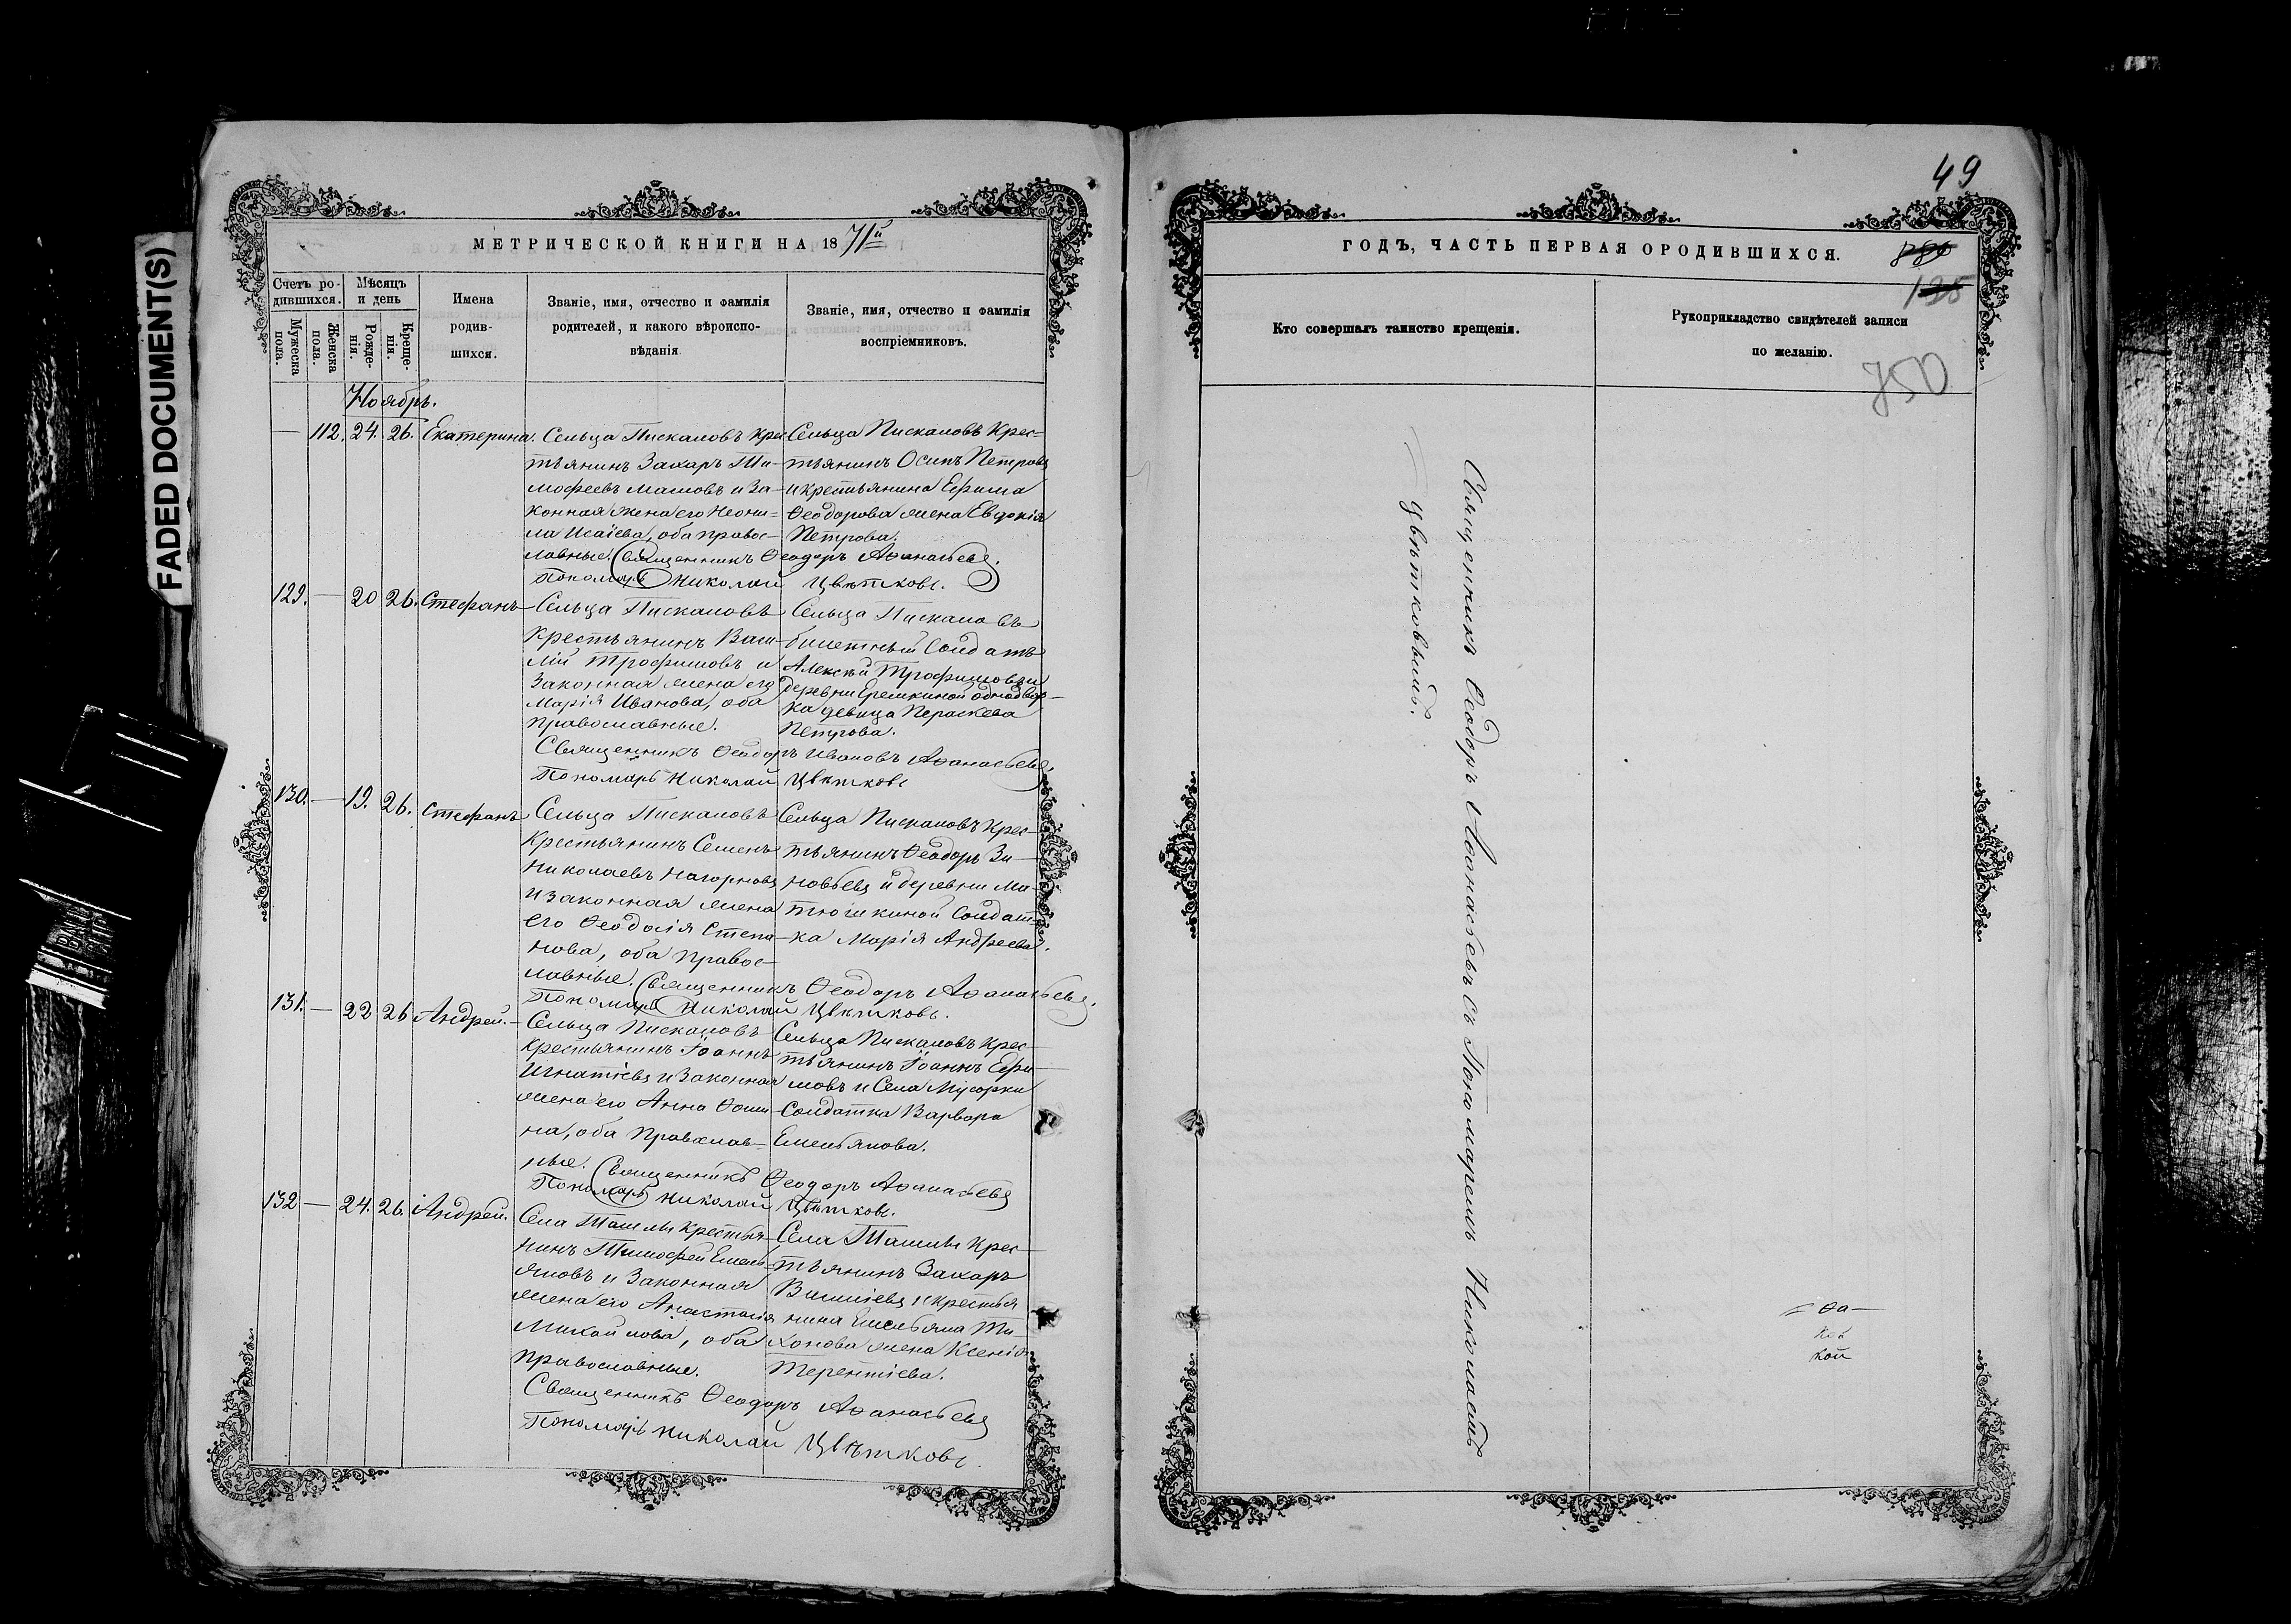 FADED DOCUMENT(S)
МЕТРИЧЕСКОЙ КНИГИ НА 1871й
Счетъ ро-
дившихся.
Мужеска
пола.
Женска
пола.
Мѣсяцъ
и день
Рожде-
нія.
Креще-
нія.
Имена
родив-
шихся.
Званіе, имя, отчество и фамилія
родителей, и какого вѣроиспо-
вѣданія
Званіе, имя, отчество и фамилія
воспріемниковъ.
Ноябрь.
— 112. 24. 26. Екатерина.
Сельца Пискаловъ Кре
тьянинъ Захаръ Ти-
мофеевъ и за-
конная жена его Неони-
ла Исаіева, оба правос-
лавные.
Сельца Пискаловъ Крес-
тьянинъ Осипъ Петровъ
и крестьянина Ефима
Ѳеодорова жена Евдокія
Петрова.
Священникъ Ѳеодоръ Аѳанасьевъ.
Пономарь Николай Цвѣтковъ.
129. — 20 26. Стефанъ
Сельца Пискаловъ
Крестьянинъ Васи-
лій Трофимовъ и
Законная жена его
Марія Иванова, оба
православные.
Сельца Пискаловъ
билетный Солдатъ
Алексѣй Трофимовъ и
деревни Еремкиной однодвор-
ка девица Пераскева
Петрова.
Священникъ Ѳеодоръ Ивановъ Аѳанасьевъ,
Пономарь Николай Цвѣтковъ
130. — 19. 26. Стефанъ
Сельца Пискаловъ
Крестьянинъ Семенъ
Николаевъ Нагорновъ
и законная жена
его Ѳеодосія Степа-
нова, оба правос-
лавные.
Сельца Пискаловъ Крес-
тьянинъ Ѳеодоръ Зи-
новьевъ и деревни Ма-
тюшкиной Солдат-
ка Марія Андреева.
Священникъ Ѳеодоръ Аѳанасьевъ.
Пономарь Николай Цвѣтковъ.
131. — 22 26 Андрей.
Сельца Пискаловъ
Крестьянинъ Іоаннъ
Игнатіевъ и Законная
жена его Анна Ѳоми-
на, оба Православ-
ные.
Сельца Пискаловъ Крес-
тьянинъ Іоаннъ Ефи-
мовъ и Села Мусорки
Солдатка Варвара
Емельянова.
Священникъ Ѳеодоръ Аѳанасьевъ
Пономарь Николай Цвѣтковъ.
132 — 24. 26. Андрей.
Села Ташлы Крестья-
нинъ Тимофей Емель-
яновъ и Законная
жена его Анастасія
Михайлова, оба
православные.
Села Ташлы Крес-
тьянинъ Захаръ
Василіевъ и крестья
нина Емельяна Ти
хонова жена Ксенія
Терентіева.
Священникъ Ѳеодоръ Аѳанасьевъ
Пономарь Николай Цвѣтковъ.
49
ГОДЪ, ЧАСТЬ ПЕРВАЯ ОРОДИВШИХСЯ.
Кто совершалъ таинство крещенія.
Рукоприкладство свидѣтелей записи
по желанію.
750
Священникъ Ѳеодоръ Аѳанасьевъ съ Пономаремъ Николаемъ
Цвѣтковымъ.